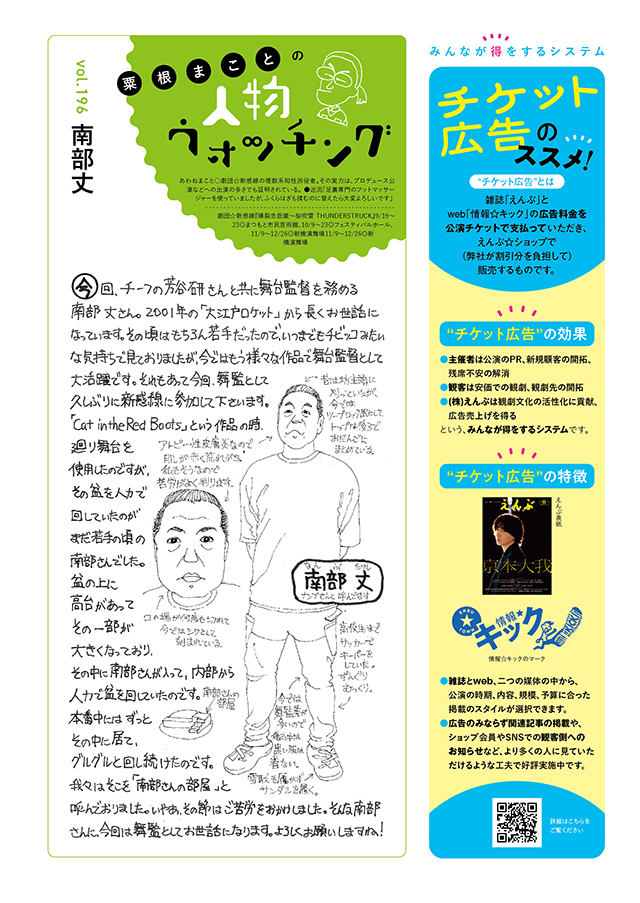 vol.196 南部丈
粟根まことの
人物
ウォッチング
あわねまこと○劇団☆新感線の複数系知性派役者。その実力は、プロデュース公
演などへの出演の多さでも証明されている。●近況「足裏専門のフットマッサー
ジャーを使っていましたが、ふくらはぎも揉むのに替えたら大変よろしいです」
劇団☆新感線『爆裂忠臣蔵〜桜吹雪 THUNDERSTRUCK』9/19〜
23◎まつもと市民芸術館、10/9〜23◎フェスティバルホール、
11/9〜12/26◎新橋演舞場11/9〜12/26◎新
橋演舞場
今回、チーフの芳谷研さんと共に舞台監督を務める
南部丈さん。2001年の「大江戸ロケット」から長くお世話に
なっています。その頃はもちろん若手だったので、いつまでもチビッコみたい
な気持ちで見ておりましたが、今ではもう様々な作品で舞台監督として
大活躍です。それもあって今回、舞監として
久しぶりに新感線に参加して下さいます。
「Cat in the Red Boots」という作品の時、
廻り舞台を
使用したのですが、
その盆を人力で
回していたのが
まだ若手の頃の
南部さんでした。
盆の上に
高台があって
その一部が
大きくなっており、
その中に南部さんが入って、内部から
人力で盆を回していたのです。
本番中にはずっと
その中に居て、
グルグルと回し続けたのです。
我々はそこを「南部さんの部屋」と
呼んでおりました。いやあ、その節はご苦労をおかけしました。そんな南部
さんに、今回は舞監としてお世話になります。よろしくお願いしますね!
昔は坊主頭に
刈っていたが、
今では
ツーブロック風にして
トップは後ろで
おだんごに
まとめている。
アトピー性皮膚炎なので
肌が赤く荒れがち。
私もそうなので
苦労がよく判ります。
なんぶたけし
南部 丈
ナンブさんと呼んでいます
今では
刻まれている。
高校生まで
サッカーで
キーパーを
していた。
ずんぐり
むっくり。
南部さんの
部屋
今では
舞監業が
多いので
黒い服は
着ない。
雪駄も履かず
サンダルを履く。
みんなが得をするシステム
チケット
広告の
ススメ!
“チケット広告”とは
雑誌「えんぶ」と
web「情報☆キック」の広告料金を
公演チケットで支払っていただき、
えんぶ☆ショップで
(弊社が割引分を負担して)
販売するものです。
“チケット広告”の効果
●主催者は公演のPR、新規顧客の開拓、
残席不安の解消
●観客は安価での観劇、観劇先の開拓
●(株)えんぶは観劇文化の活性化に貢献、
広告売上げを得る
という、みんなが得をするシステムです。
“チケット広告”の特徴
えんぶ
京本大我
えんぶ表紙
ENBU
情報☆
キック
情報☆キックのマーク
●雑誌とweb、二つの媒体の中から、
公演の時期、内容、規模、予算に合った
掲載のスタイルが選択できます。
●広告のみならず関連記事の掲載や、
ショップ会員やSNSでの観客側への
お知らせなど、より多くの人に見ていた
だけるような工夫で好評実施中です。
詳細はこちらを
ご覧ください